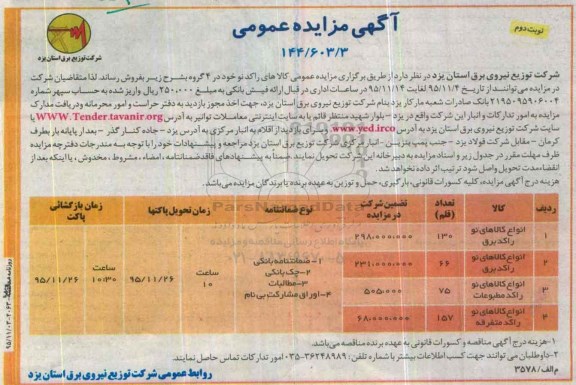 نوبت دوم
آگهی مزایده عمومی
۱۴۴/۶۰۳/۳
شرکت توزیع برق استان یزد
شرکت توزیع نیروی برق استان یزد در نظر دارد از طریق برگزاری مزایده عمومی کالا های راکد نو خود در ۴ گروه بشرح زیر بفروش رساند. لذا متقاضیان شرکت
در مزایده می توانند از تاریخ ۹۵/۱۱/۴ لغایت ۹۵/۱۱/۱۴ در ساعات اداری در قبال ارائه فیش بانکی به مبلغ ۲۵۰،۰۰۰ ریال واریز شده به حساب سپهر شماره
۲۱۹۵۰۹۵۹۰۶۰۰۴ بانک صادرات شعبه مارکار یزد بنام شرکت توزیع نیروی برق استان یزد، جهت اخذ مجوز بازدید به دفتر حراست و امور محرمانه و دریافت مدارک
مزایده به امور تدارکات و انبار این شرکت واقع در یزد - بلوار شهید منتظر قائم یا به سایت اینترنتی معاملات توانیر به آدرس WWW.Tender.tavanir.org یا
سایت شرکت توزیع نیروی برق استان یزد به آدرس www.yed.ir.co و برای بازدید از اقلام به انبار مرکزی به آدرس یزد - جاده کنار گذر - بعد از پایانه بار بطرف
کرمان - مقابل شرکت فولاد یزد - جنب پمپ بنزین - انبار مرکزی شرکت توزیع برق استان یزد مراجعه و پیشنهادات خود را با توجه به مندرجات دفترچه مزایده
ظرف مهلت مقرر در جدول زیر و اسناد مزایده به دبیر خانه این شرکت تحویل نمایند. ضمناً به پیشنهادهای فاقد ضمانتنامه، امضاء، مشروط، مخدوش، یا اینکه بعد از
انقضاء مدت تحویل واصل شود ترتیب اثر داده نخواهد شد.
هزینه درج آگهی مزایده، کلیه کسورات قانونی، بارگیری، حمل و توزین به عهده برنده یا برندگان مزایده می باشد.
ردیف کالا تعداد (قلم) تضمین شرکت در مزایده نوع ضمانتنامه زمان تحویل پاکتها زمان بازگشائی پاکت
۱ انواع کالاهای نو راکد برق ۱۳۰ ۲۹۸،۰۰۰،۰۰۰
۲ انواع کالاهای نو راکد برق ۶۶ ۲۳۱،۰۰۰،۰۰۰
۳ انواع کالاهای نو راکد مطبوعات ۷۵ ۵۰۵،۰۰۰
۴ انواع کالاهای نو راکد متفرقه ۱۵۷ ۶۸،۰۰۰،۰۰۰
۱- ضمانتنامه بانکی
۲- چک بانکی
۳- مطالبات
۴- اوراق مشارکت بی نام
ساعت ۱۰ ۹۵/۱۱/۲۶
ساعت ۱۰:۳۰ ۹۵/۱۱/۲۶
۱- هزینه درج آگهی مناقصه و کسورات قانونی به عهده برنده مناقصه می باشد.
۲- داوطلبان می توانند جهت کسب اطلاعات بیشتر با شماره تلفن: ۳۶۲۴۸۹۸۹-۰۳۵ امور تدارکات تماس حاصل نمایند.
م الف/ ۳۵۷۸
روابط عمومی شرکت توزیع نیروی برق استان یزد
ParsNamadData